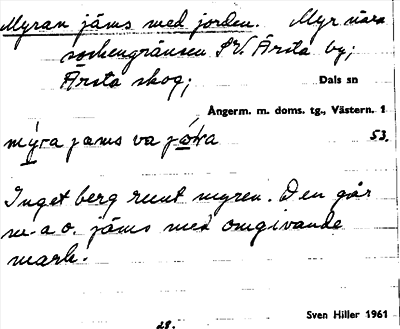 Myran jäms med jorden. Myr nära
sockengränsen SV. Ärsta by;
Ärsta skog;
Dals sn
Ångerm. m. doms. tg., Västern. 1
mýra jams va
53.
Inget berg runt myren. Den går
m.a.o. jäms med omgivande
mark.
Sven Hiller 1961
28.